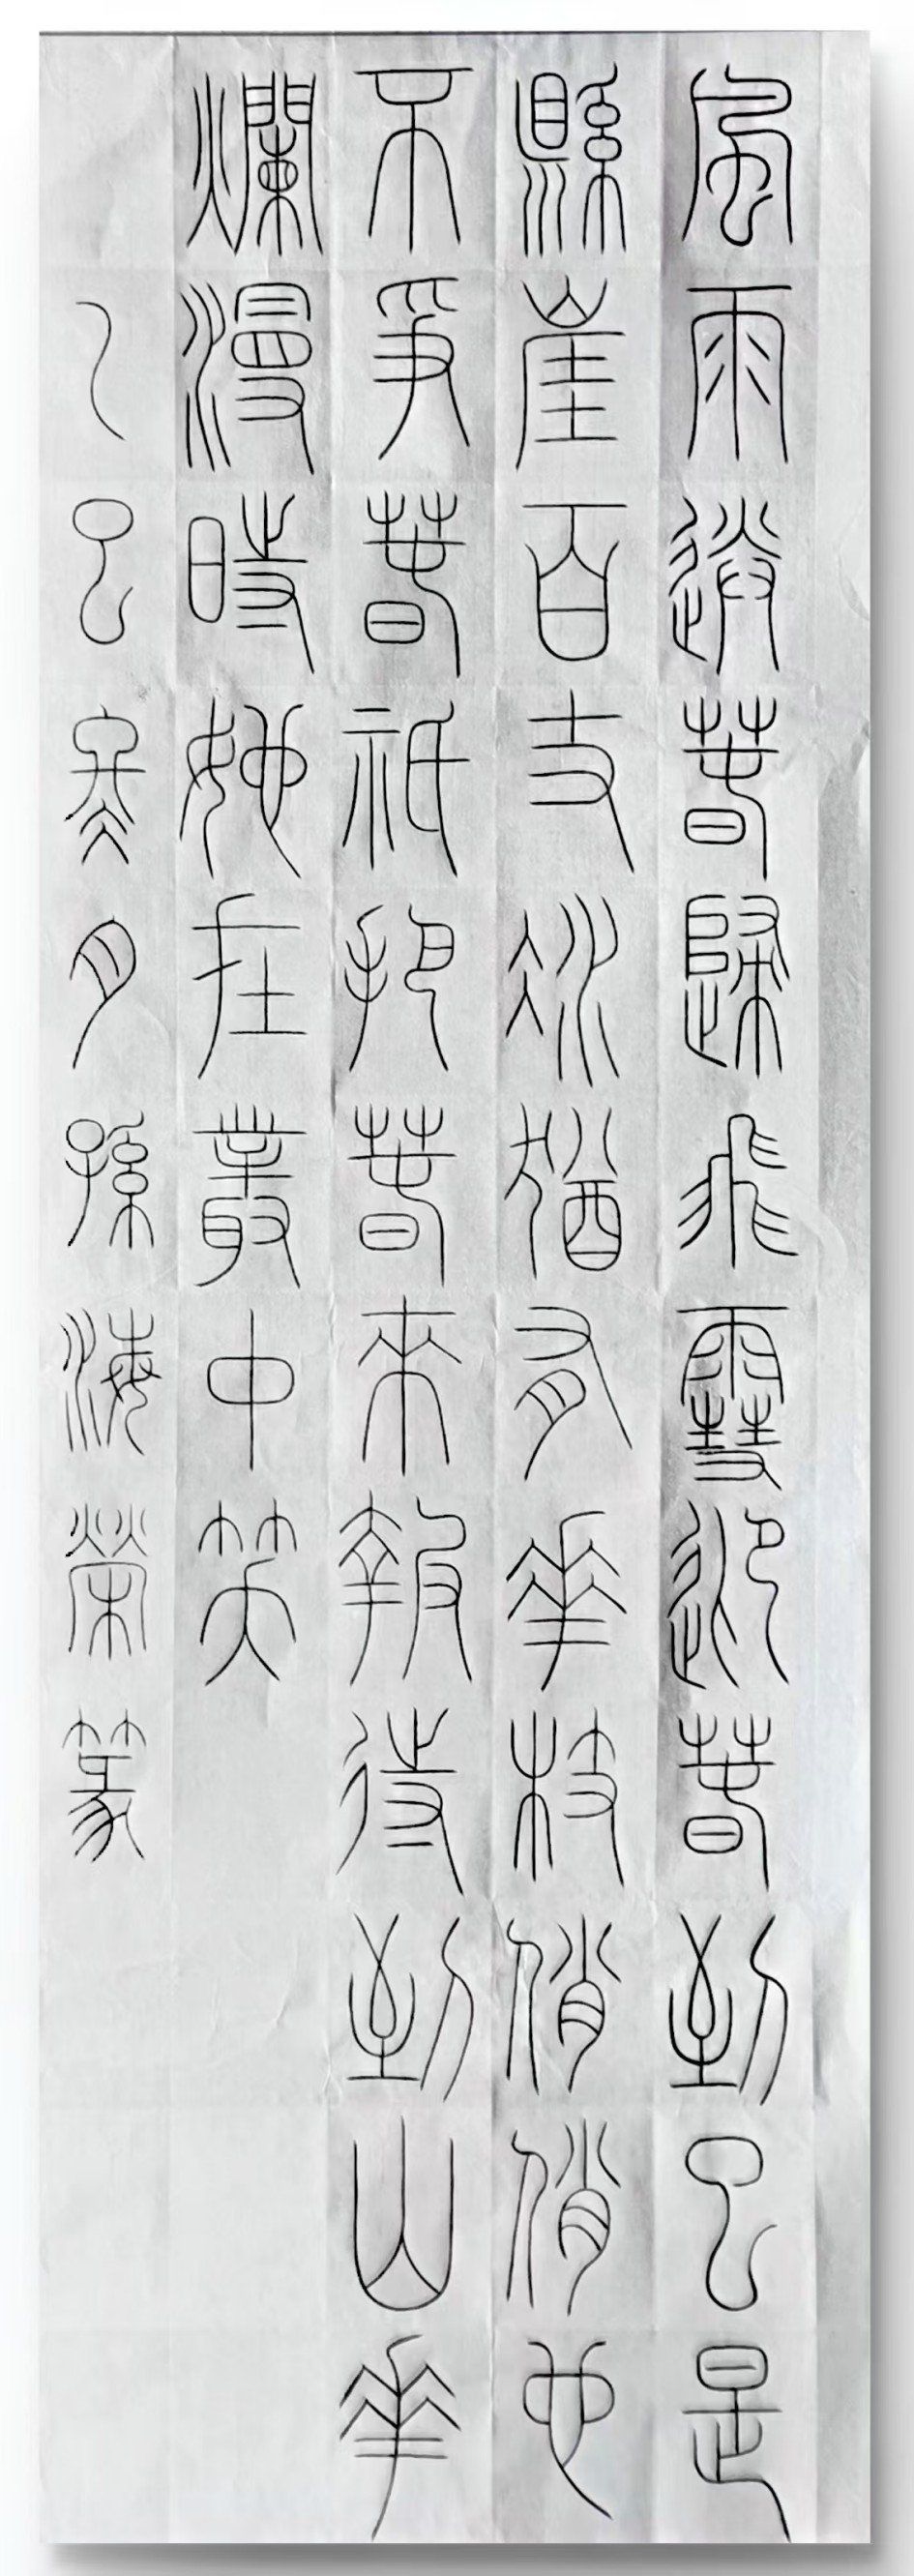 風雨送春歸飛雪迎春到已是
縣崖百丈冰猶有華枝俏俏也
不爭春祇把春來報待到山華
爛漫時她在叢中笑
乙巳寒月孫海榮篆